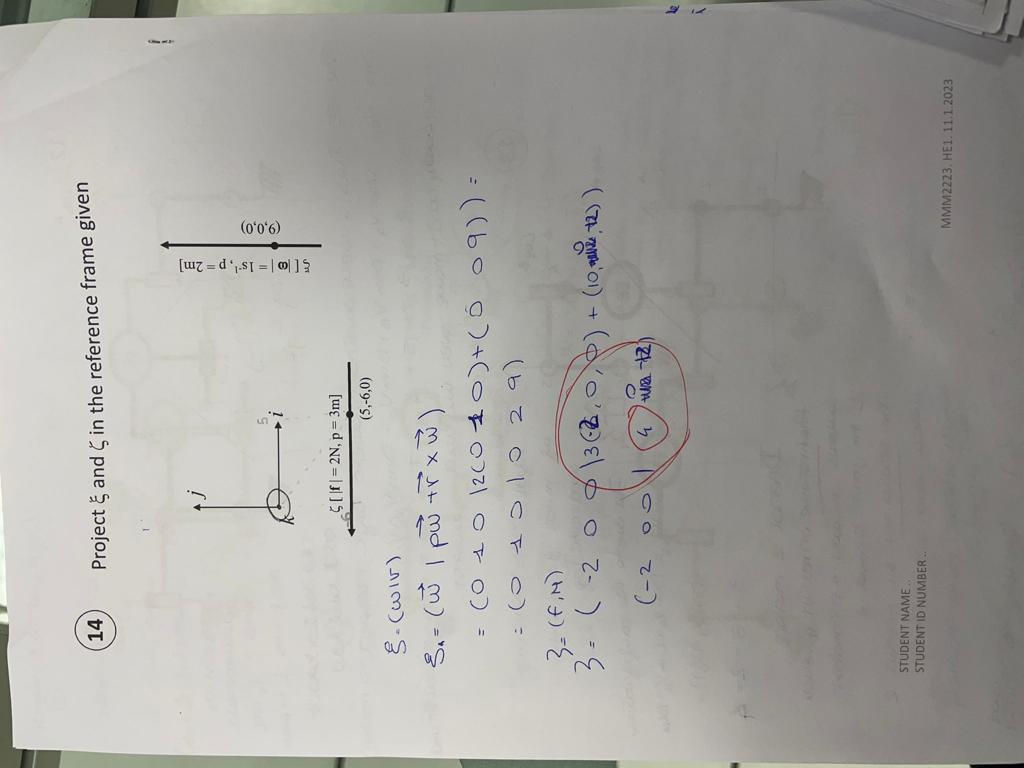 14 Project ξ and ζ in the reference frame given
j
k
5
i
ξ [ |ω| = 1s⁻¹, p = 2m]
(9,0,0)
ζ [ |f| = 2N, p = 3m]
-6
(5,-6,0)
ξ = (ω|v)
ξ = (ω⃗ | pω⃗ + r⃗ x ω⃗)
= (0 1 0 | 2(0 1 0) + (0 0 9)) =
= (0 1 0 | 0 2 9)
ζ = (f, M)
ζ = ( -2 0 0 | 3(-2, 0, 0) + (10, 0, -12) )
(-2 0 0 | 4 0 -12)
STUDENT NAME ..
STUDENT ID NUMBER ..
MMM2223. HE1. 11.1.2023